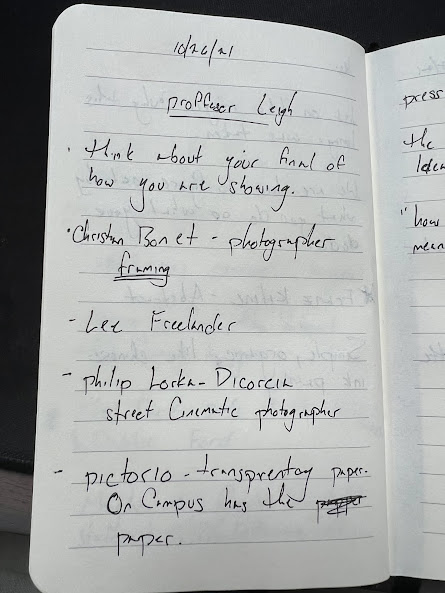 10/26/21
proffesser Leigh
• think about your final of
how you are showing.
• Christian Bonet - photographer
framing
- Lee Freelander
- philip Lorka-Dicorcia
street Cinematic photographer
- pictorio - transprentay paper.
On Campus has the
paper.
press
the
"how
mean